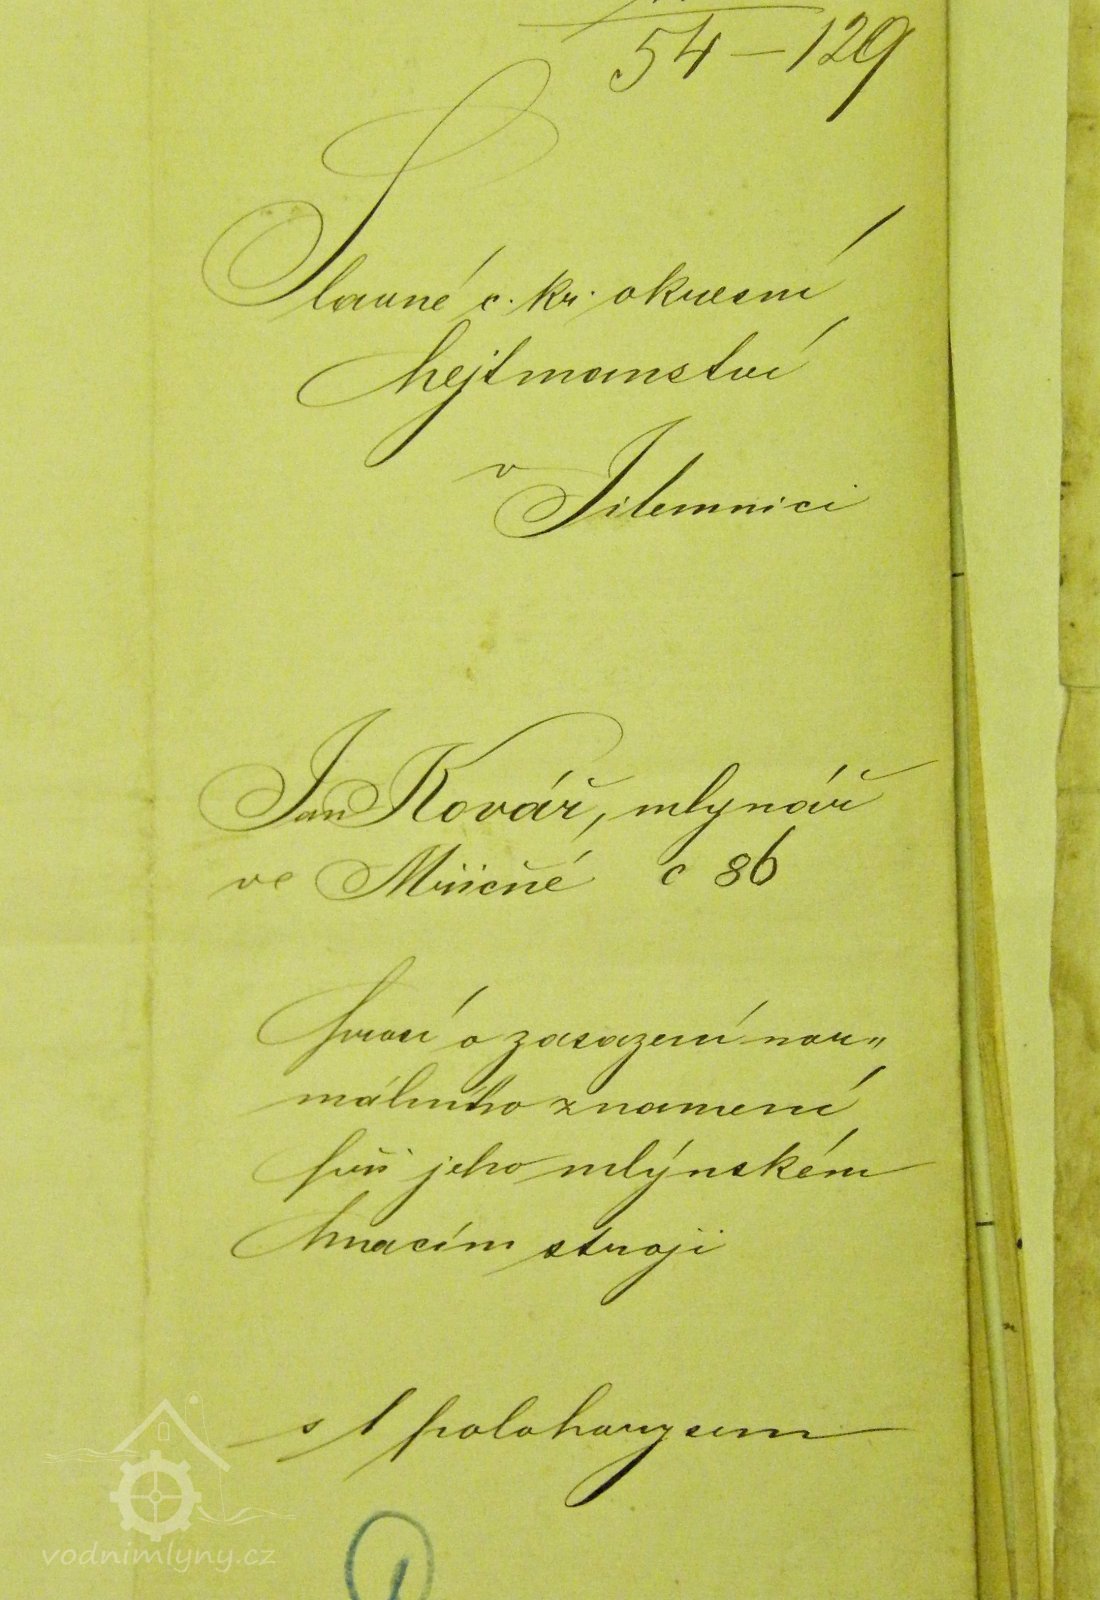 54 – 129
Slavné c. kr. okresní
hejtmanství
v Jilemnici
Jan Kovář, mlynář
ve Mříčné č 86
prosí o zasazení nor„
málního znamení
při jeho mlýnském
hnacím stroji
s 1 polohopysem
1
vodnimlyny.cz